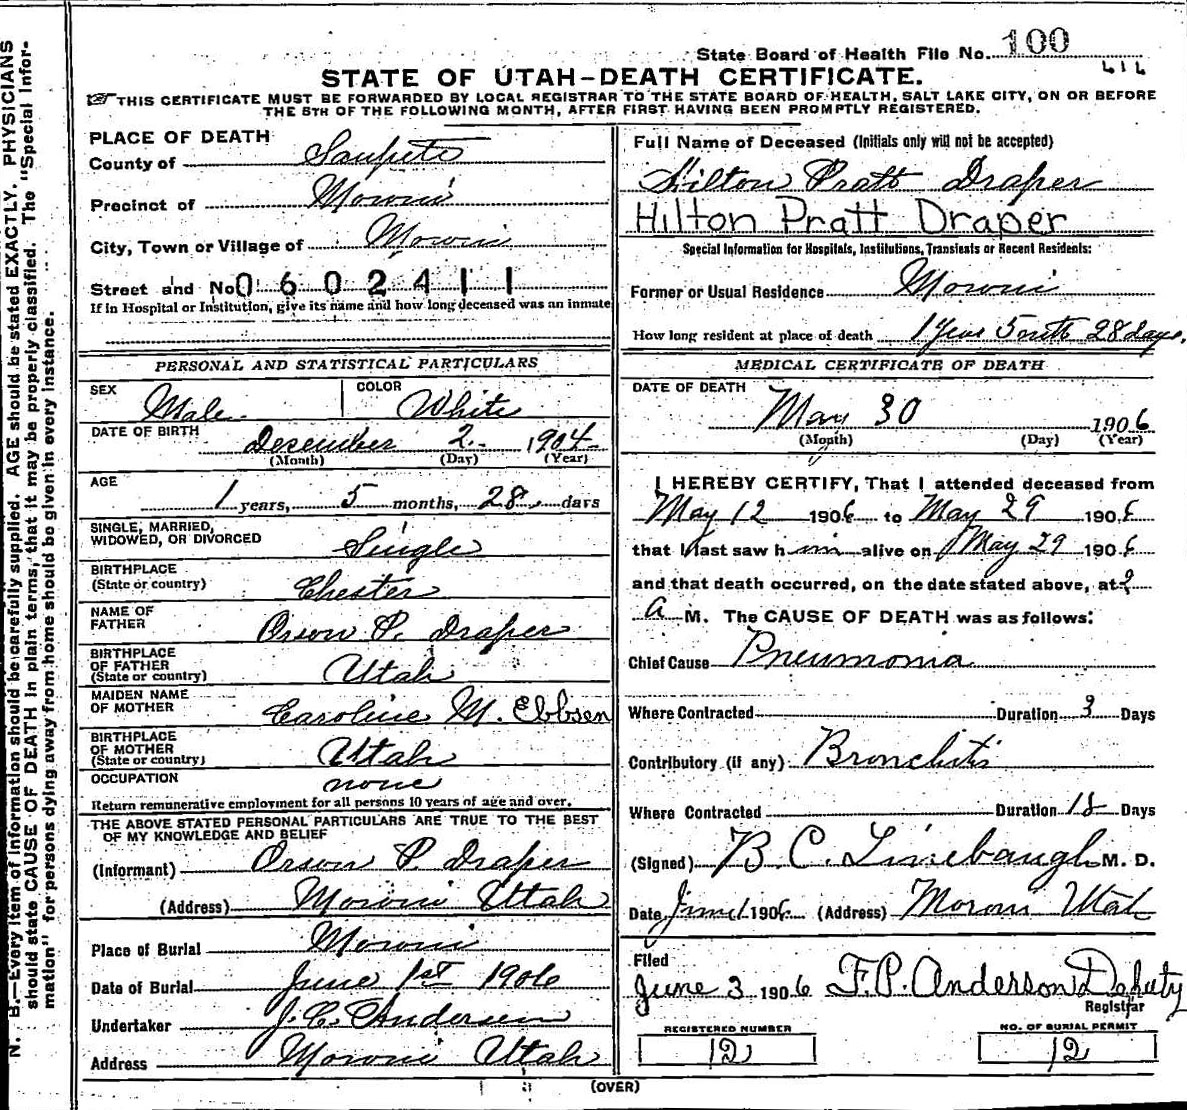 State Board of Health File No. 100
STATE OF UTAH-DEATH CERTIFICATE.
THIS CERTIFICATE MUST BE FORWARDED BY LOCAL REGISTRAR TO THE STATE BOARD OF HEALTH, SALT LAKE CITY, ON OR BEFORE
THE 5TH OF THE FOLLOWING MONTH, AFTER FIRST HAVING BEEN PROMPTLY REGISTERED.
PLACE OF DEATH
County of Sanpete
Precinct of Moroni
City, Town or Village of Moroni
Street and No. 0602411
If in Hospital or Institution, give its name and how long deceased was an inmate
PERSONAL AND STATISTICAL PARTICULARS
SEX Male COLOR White
DATE OF BIRTH December 2 1904
(Month) (Day) (Year)
AGE 1 years, 5 months, 28 days
SINGLE, MARRIED,
WIDOWED, OR DIVORCED Single
BIRTHPLACE
(State or country) Chester
NAME OF
FATHER Orson P. Draper
BIRTHPLACE
OF FATHER
(State or country) Utah
MAIDEN NAME
OF MOTHER Caroline M. Ebbsen
BIRTHPLACE
OF MOTHER
(State or country) Utah
OCCUPATION none
Return remunerative employment for all persons 10 years of age and over.
THE ABOVE STATED PERSONAL PARTICULARS ARE TRUE TO THE BEST
OF MY KNOWLEDGE AND BELIEF
(Informant) Orson P. Draper
(Address) Moroni Utah
Place of Burial Moroni
Date of Burial June 1st 1906
Undertaker J. C. Andersen
Address Moroni Utah
Full Name of Deceased (Initials only will not be accepted)
Hilton Pratt Draper
Hilton Pratt Draper
Special Information for Hospitals, Institutions, Transients or Recent Residents:
Former or Usual Residence Moroni
How long resident at place of death 1 Year 5 28 days.
MEDICAL CERTIFICATE OF DEATH
DATE OF DEATH
May 30 1906
(Month) (Day) (Year)
I HEREBY CERTIFY, That I attended deceased from
May 12 1906 to May 29 1906
that I last saw him alive on May 29 1906
and that death occurred, on the date stated above, at 2
a M. The CAUSE OF DEATH was as follows:
Chief Cause Pneumonia
Where Contracted Duration 3 Days
Contributory (if any) Bronchitis
Where Contracted Duration 18 Days
(Signed) B C. Linebaugh M. D.
Date June 1 1906 (Address) Moroni Utah
Filed
June 3 1906 F.P. Anderson Deputy
Registrar
REGISTERED NUMBER
12
NO. OF BURIAL PERMIT
12
(OVER)
N. B.—Every item of information should be carefully supplied. AGE should be stated EXACTLY. PHYSICIANS
should state CAUSE OF DEATH in plain terms, that it may be properly classified. The "Special Infor-
mation" for persons dying away from home should be given in every instance.